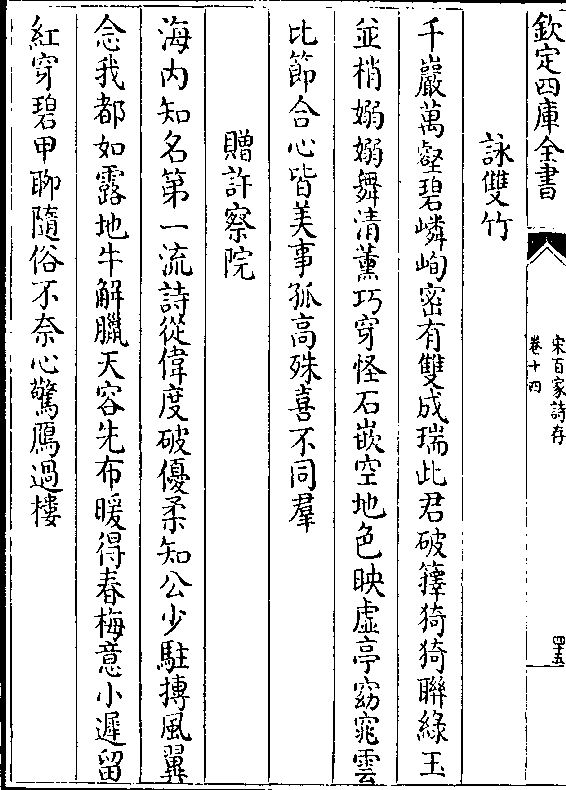 欽定四庫全書
宋百家詩存
卷十四
四十五
詠雙竹
千巖萬壑碧嶙峋密有雙成瑞此君破籜猗猗聯綠玉
並梢嫋嫋舞清薰巧穿怪石嵌空地色映虛亭窈窕雲
比節合心皆美事孤高殊喜不同羣
贈許察院
海内知名第一流詩從偉度破優柔知公少駐摶風翼
念我都如露地牛解臘天容先布暖得春梅意小遲留
紅穿碧甲聊隨俗不奈心驚鴈過樓